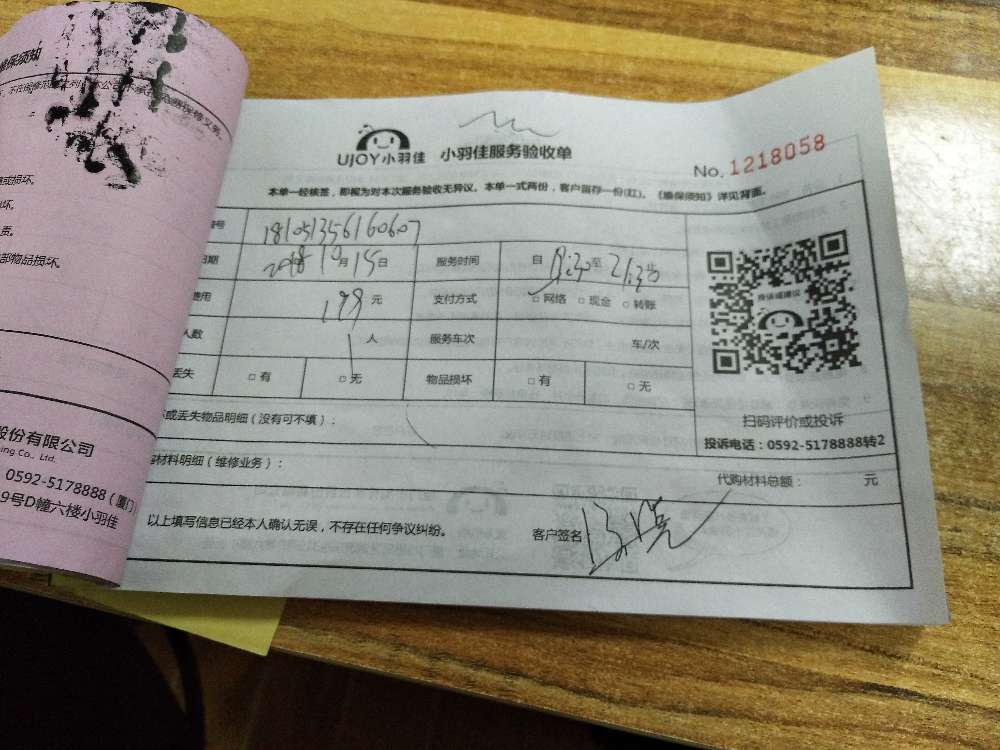 修保须知
或损坏。
坏。
责。
部物品损坏。
股份有限公司
ing Co., Ltd.
0592-5178888（厦门）
9号D幢六楼小羽佳
UJOY小羽佳 小羽佳服务验收单
No. 1218058
本单一经核签，即视为对本次服务验收无异议。本单一式两份，客户留存一份(红)。《维保须知》详见背面。
编号 181051356160607
日期 2018年10月15日 服务时间 自 18:30至21:30止
费用 199 元 支付方式 □ 网络 □ 现金 □ 转账
人数 1 人 服务车次 车/次
丢失 □ 有 □ 无 物品损坏 □ 有 □ 无
投诉或建议
扫码评价或投诉
投诉电话：0592-5178888转2
坏或丢失物品明细（没有可不填）：
购材料明细（维修业务）： 代购材料总额： 元
以上填写信息已经本人确认无误，不存在任何争议纠纷。 客户签名